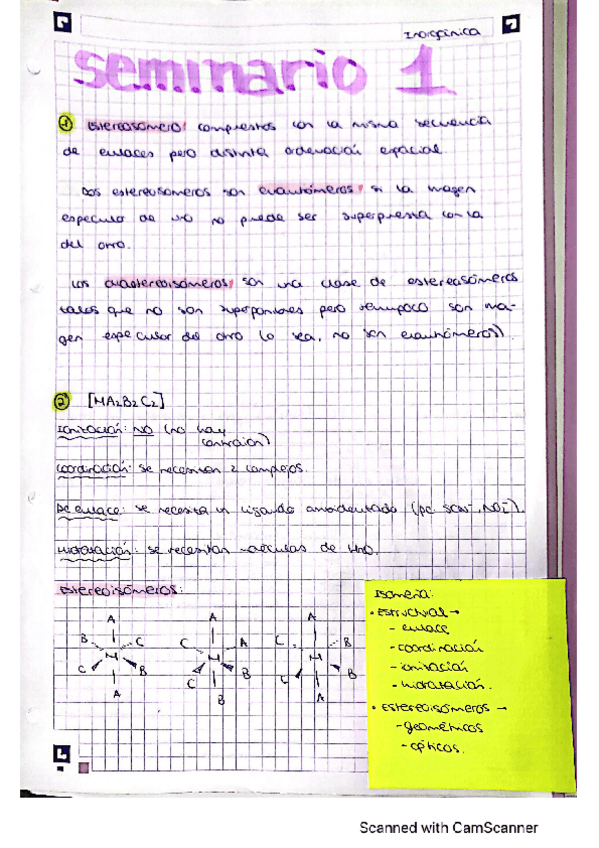 Inorgánica
seminario 1
1 Estereoisómero: compuestos con la misma secuencia
de enlaces pero distinta ordenación espacial.
Dos estereoisómeros son enantiómeros, si la imagen
especular de uno no puede ser superpuesta con la
del otro.
Los diastereoisómeros, son una clase de estereoisómeros
tales que no son superponibles pero tampoco son ima-
gen especular del otro (o sea, no son enantiómeros).
2 [MA2B2C2]
Ionización: NO (no hay
contraion)
Coordinación: se necesitan 2 complejos.
De enlace: se necesita un ligando ambidentado (pe: SCN-, NO2-).
Hidratación: se necesitan moléculas de H2O.
Estereoisómeros:
A A A
B C C A C B
M M M
C B C B C B
A B A
Isomería:
• Estructural →
- enlace
- coordinación
- ionización
- hidratación.
• Estereoisómeros →
- geométricos
- ópticos.
Scanned with CamScanner